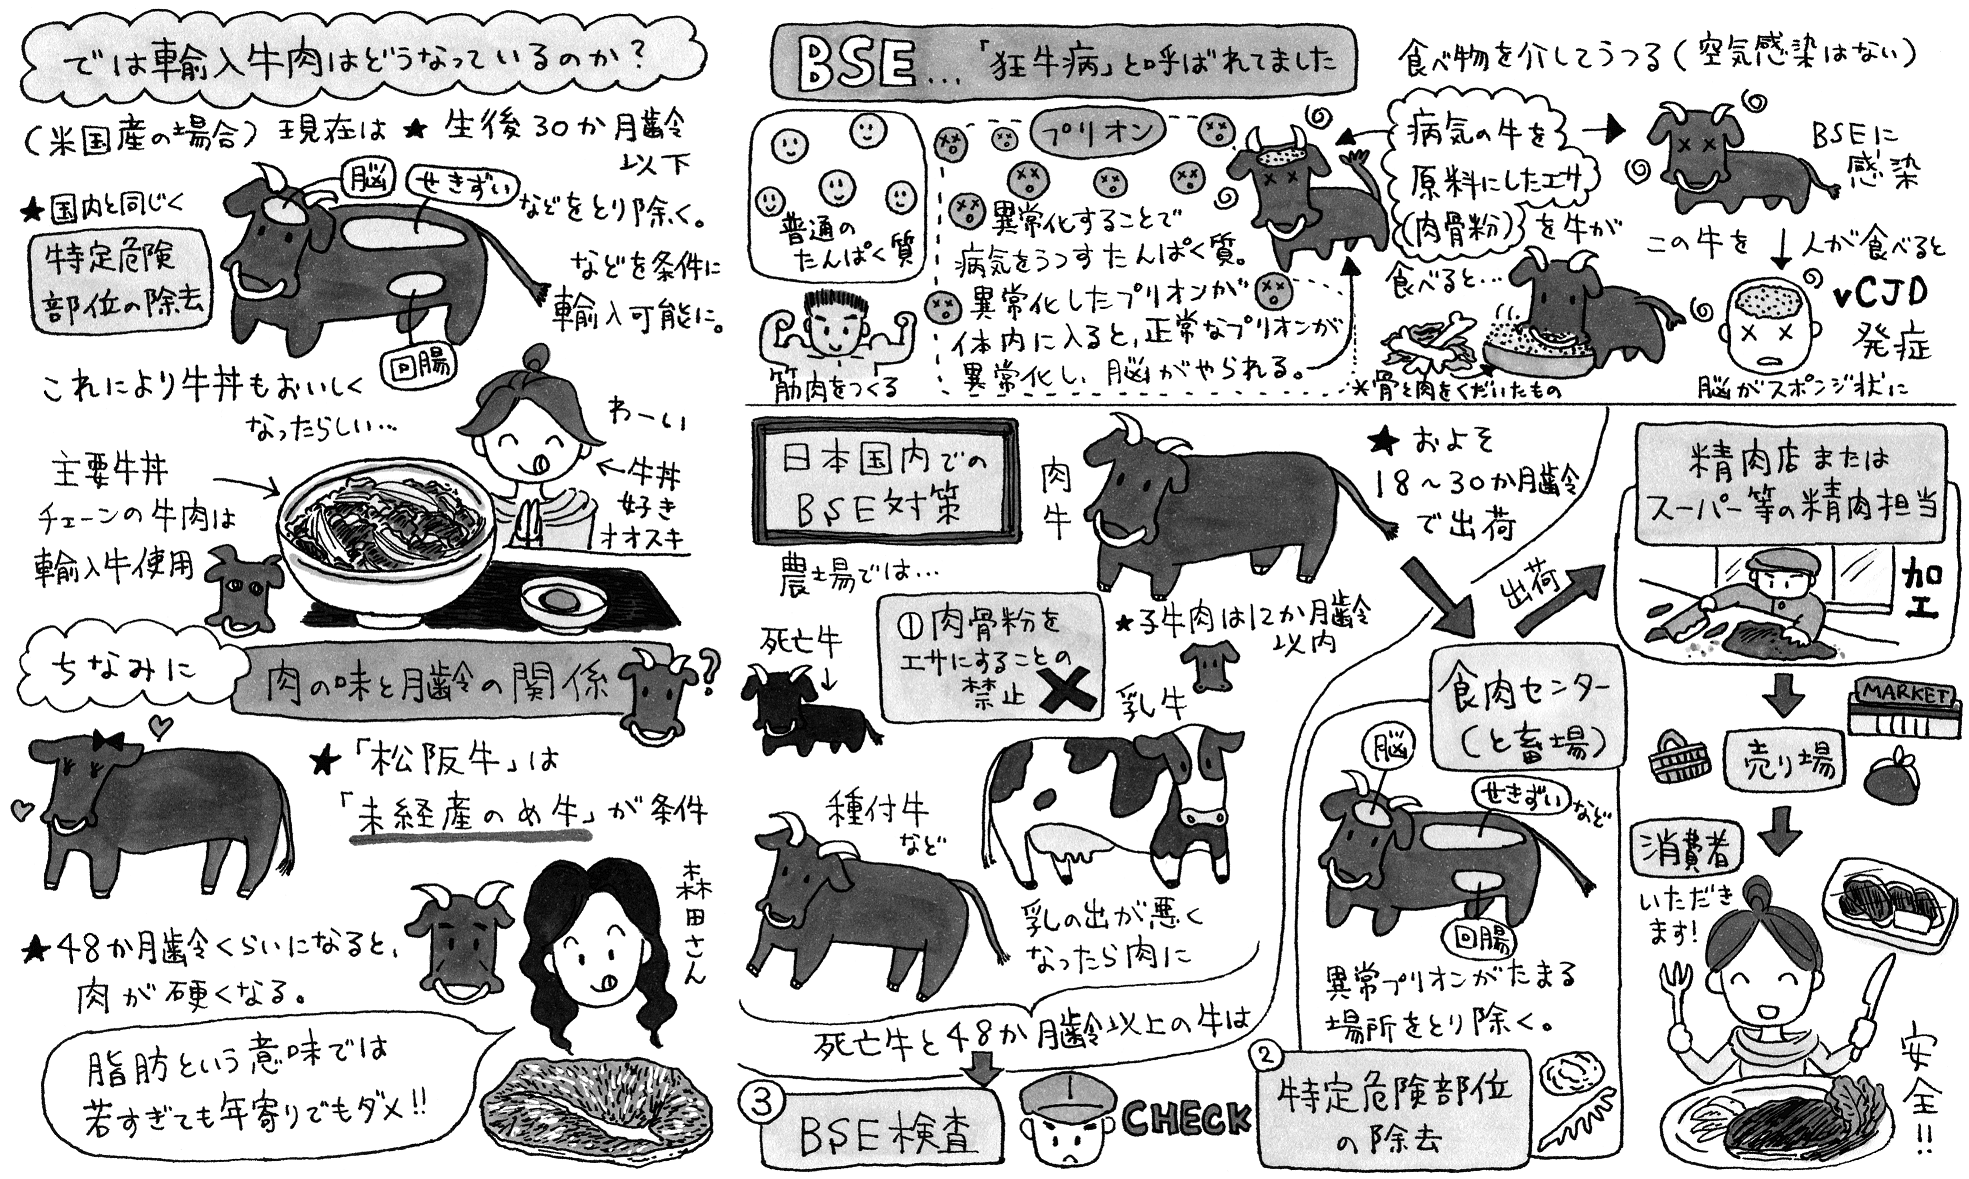 では輸入牛肉はどうなっているのか?
(米国産の場合) 現在は ★ 生後30か月齢
以下
★国内と同じく
特定危険
部位の除去
脳
せきずい
などをとり除く。
回腸
などを条件に
輸入可能に。
これにより牛丼もおいしく
なったらしい…
わーい
←牛丼
好き
オオスキ
主要牛丼
チェーンの牛肉は
輸入牛使用
ちなみに
肉の味と月齢の関係
?
★「松阪牛」は
「未経産のめ牛」が条件
森田さん
★48か月齢くらいになると、
肉が硬くなる。
脂肪という意味では
若すぎても年寄りでもダメ!!
BSE…「狂牛病」と呼ばれてました
普通の
たんぱく質
筋肉をつくる
プリオン
異常化することで
病気をうつすたんぱく質。
異常化したプリオンが
体内に入ると、正常なプリオンが
異常化し、脳がやられる。
食べ物を介してうつる(空気感染はない)
病気の牛を
原料にしたエサ
(肉骨粉)を牛が
食べると…
※骨と肉をくだいたもの
BSEに
感染
この牛を
人が食べると
vCJD
発症
脳がスポンジ状に
日本国内での
BSE対策
農場では…
肉牛
★およそ
18~30か月齢
で出荷
①肉骨粉を
エサにすることの
禁止
死亡牛
★子牛肉は12か月齢
以内
乳牛
種付牛
など
乳の出が悪く
なったら肉に
死亡牛と48か月齢以上の牛は
③
BSE検査
CHECK
食肉センター
(と畜場)
脳
せきずい
など
回腸
異常プリオンがたまる
場所をとり除く。
②
特定危険部位
の除去
出荷
精肉店または
スーパー等の精肉担当
加工
MARKET
売り場
消費者
いただき
ます!
安全!!